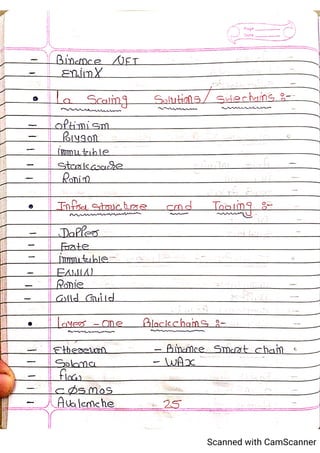 - Binance NFT
- EnJinX
• La Scaling Solutions/ sidechains :-
- optimism
- Polygon
- immutable
- Starkware
- Ronin
• Infra structure and Tooling :-
- Dapper
- Forte
- immutable
- ENJIN
- Ronie
- Guild Guild
• layer - one Blockchains :-
- Ethereum - Binance Smart chain
- Solana - WAX
- flow
- cosmos
- Avalanche 25
Scanned with CamScanner